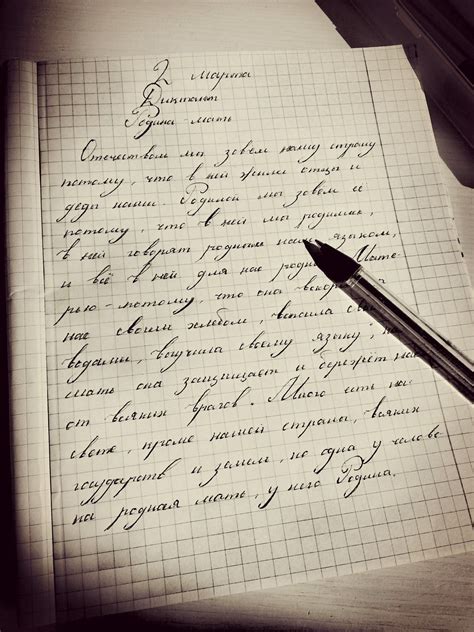 2 Марта
Диктант
Родина-мать
Отечеством мы зовём нашу страну
потому, что в ней жили отцы и
деды наши. Родиной мы зовём её
потому, что в ней мы родились,
в ней говорят родным нам языком,
и всё в ней для нас родное. Мате-
рью-потому, что она вскормила
нас своим хлебом, вспоила свои
водами, выучила своему языку;
мать она защищает и бережёт нас
от всяких врагов. Много есть на
свете, кроме нашей страны, всяких
государств и земель, но одна у челове
ка родная мать, у него Родина.